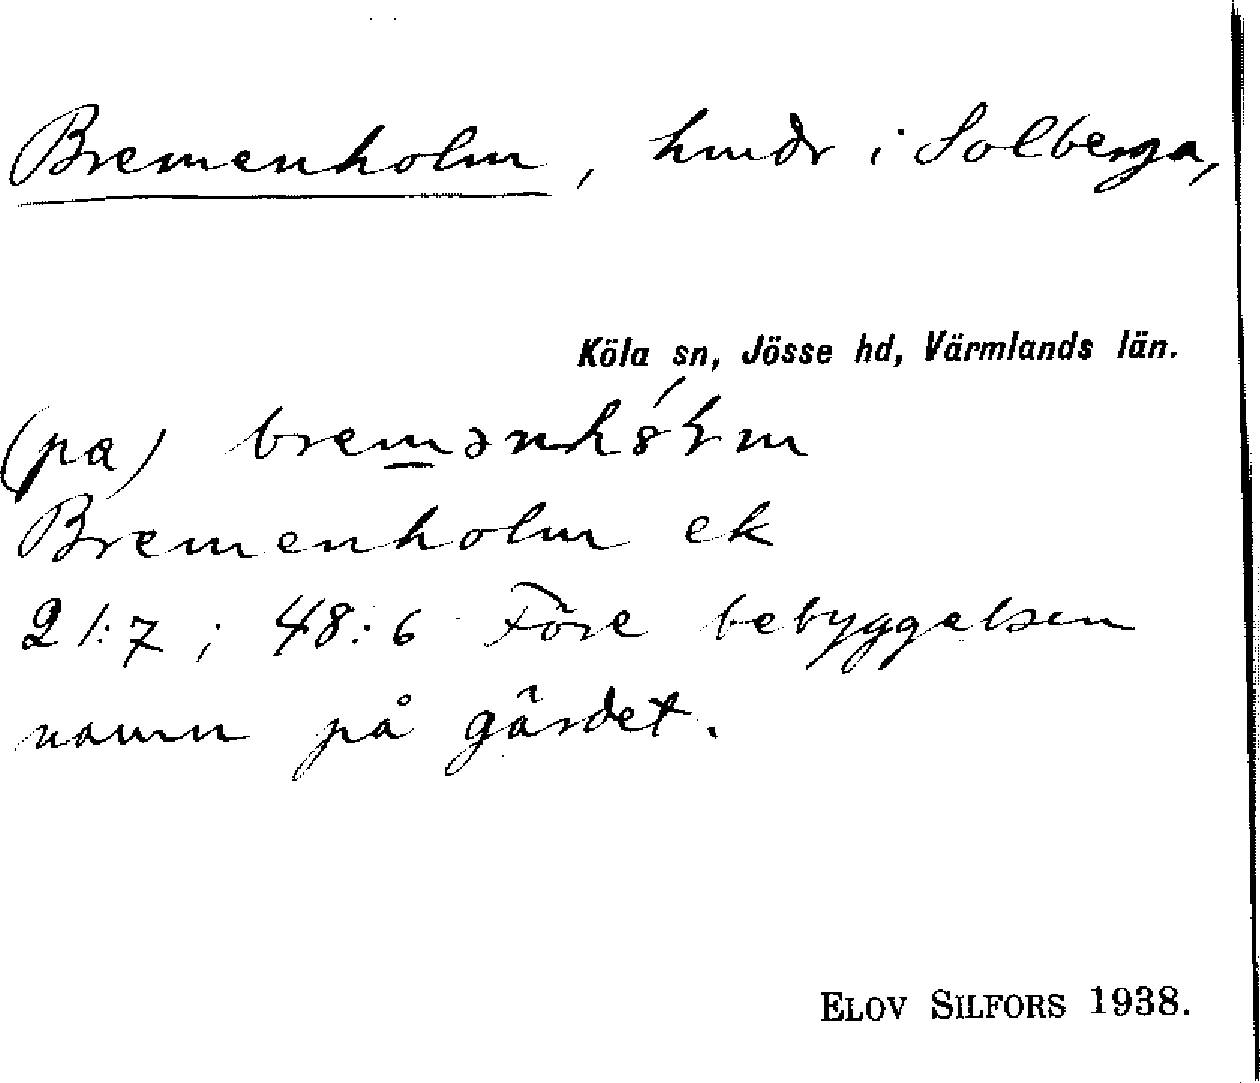 Bremenholm, hmdr i Solberga,
Köla sn, Jösse hd, Värmlands län.
(pa)
Bremenholm ek
21:7; 48:6 Före bebyggelsen
namn på gärdet.
ELOV SILFORS 1938.